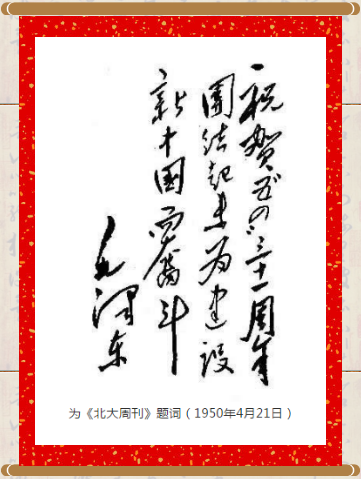 祝贺五四三十一周年
團结起来为建设
新中国而奮斗
毛澤东
为《北大周刊》题词（1950年4月21日）